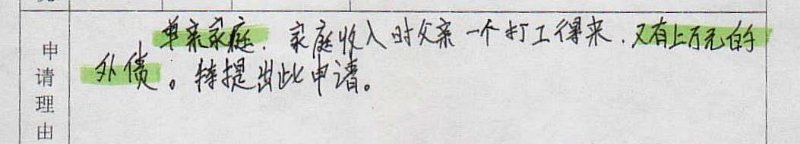 申请理由
单亲家庭．家庭收入时父亲一个打工得来．又有上万元的
外债。特提出此申请。